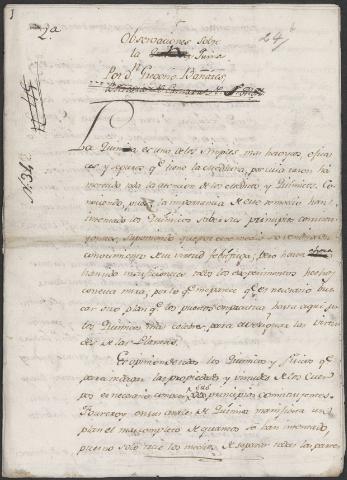 1
2.ª
24
Observaciones sobre
la Quina
Por Dⁿ Gregorio Bañares
N. 34
La Quina es uno de los simples mas heroycos, efica-
ces y seguros qᵉ tiene la medicina, por cuia razon ha
merecido toda la atencion de los Medicos y Quimicos. Co-
nociendo, pues, la importancia de este remedio han
intentado los Quimicos saber sus principios constitu-
tivos, suponiendo qᵉ por este medio se vendria en
conocimiento de su virtud febrifuga; pero hasta ahora
han sido infructuosos todos los experimentos hechos
con esta mira, por lo qᵉ me parece qᵉ es necesario bus-
car otro plan qᵉ los puestos en practica hasta aqui por
los Quimicos mas celebres, para averiguar las virtu-
des de las Plantas.
Es opinion de todos los Quimicos y Fisicos qᵉ
para indagar las propiedades y virtudes de los Cuer-
pos es necesario conocer sus principios constituyentes.
Fourcroy en su analisis de Quina manifiesta un
plan el mas completo de quantos se han intentado,
pues no solo trae los medios de separar todas las partes